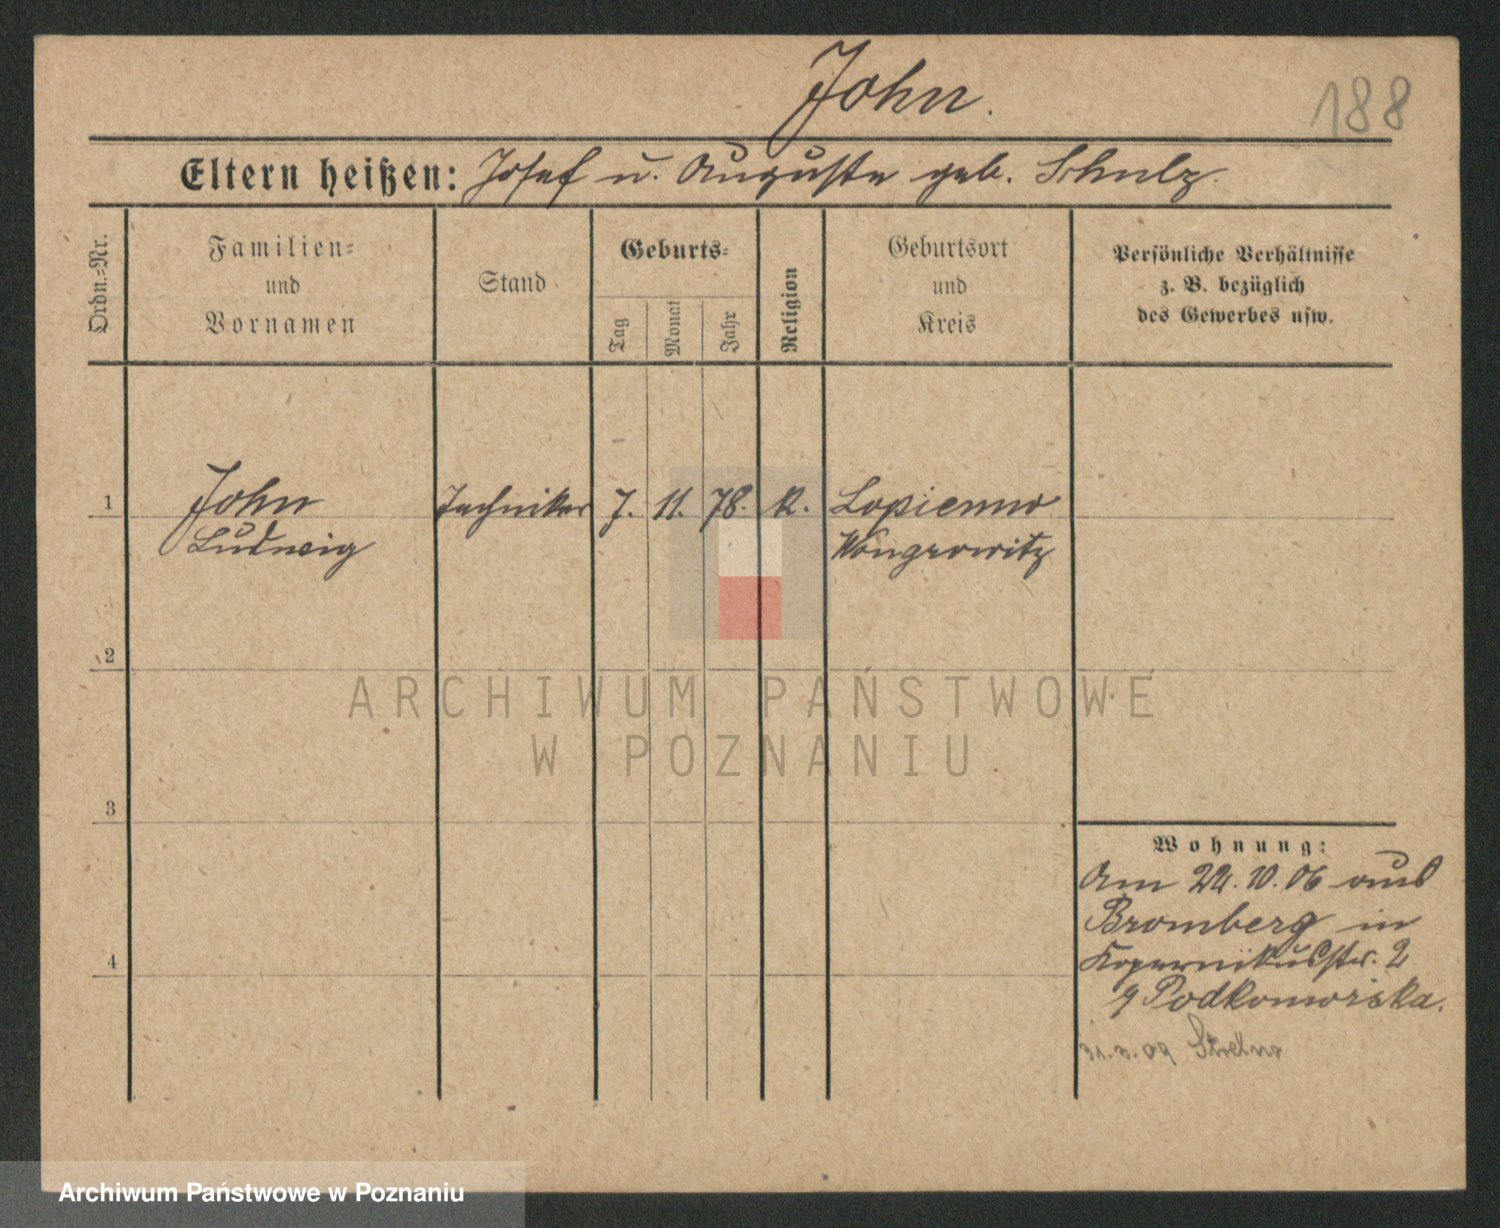 John.
188
Eltern heißen: Josef u. Auguste geb. Schulz.
Ordn.=Nr.
Familien=
und
Vornamen
Stand
Geburts=
Tag
Monat
Jahr
Religion
Geburtsort
und
Kreis
Persönliche Verhältnisse
z. B. bezüglich
des Gewerbes usw.
1 John Techniker 7. 11. 78. K. Lopienno
Ludwig Wongrowitz
2
ARCHIWUM PAŃSTWOWE
W POZNANIU
3
Wohnung:
Am 22. 10. 06 aus
Bromberg in
Kopernikusstr. 2
Podkomorska.
31.3.09 Strelno
4
Archiwum Państwowe w Poznaniu